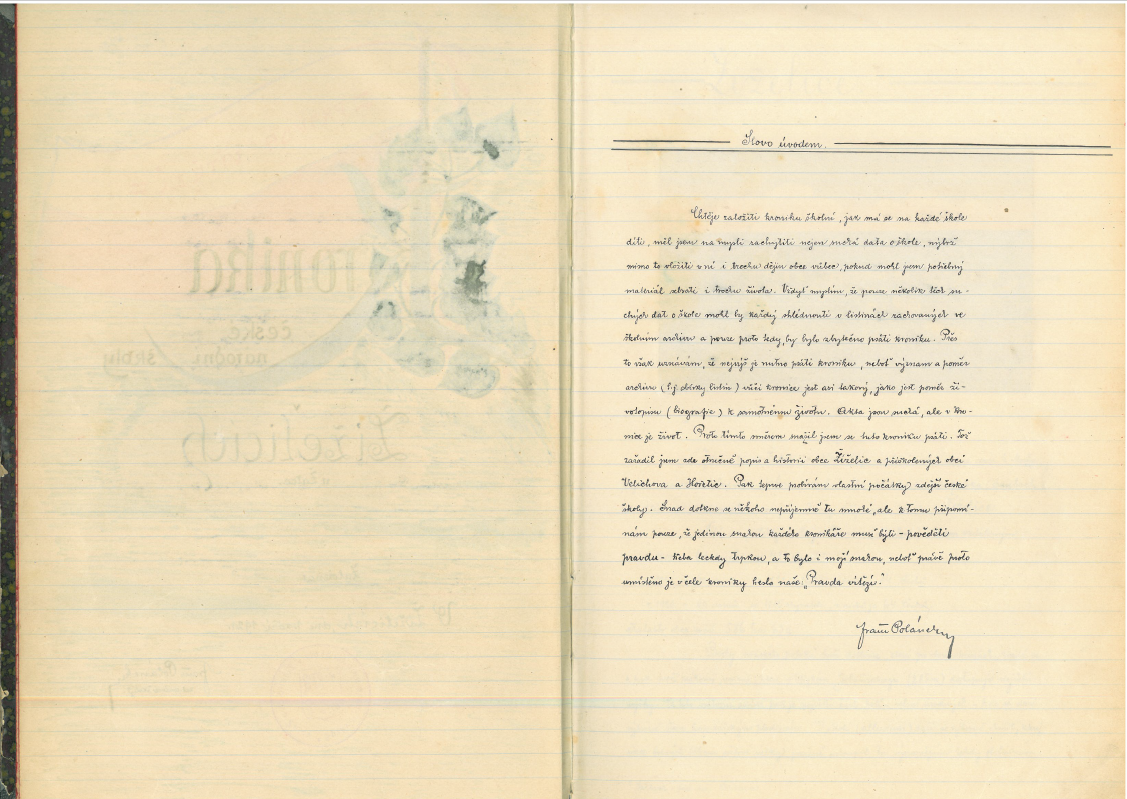 Slovo úvodem.
Chtěje založiti kroniku školní, jak má se na každé škole
díti, měl jsem na mysli zachytiti nejen suchá data o škole, nýbrž
mimo to vložiti v ní i trochu dějin obce vůbec, pokud mohl jsem potřebný
materiál sebrati i trochu života. Vždyť myslím, že pouze několik těch su-
chých dat o škole mohl by každý shlédnouti v listinách zachovaných ve
školním archivu a pouze proto tedy, by bylo zbytečno psáti kroniku. Přes
to však uznávám, že nejvýš je nutno psáti kroniku, neboť význam a poměr
archivu (t.j. sbírky listin) vůči kronice jest asi takový, jako jest poměr ži-
votopisu (biografie) k samotnému životu. Akta jsou suchá, ale v kro-
nice je život. Proto tímto směrem snažil jsem se tuto kroniku psáti. Též
zařadil jsem zde stručně popis a historii obce Žiželic a přiškolených obcí
Velichova a Hořetic. Pak teprve probírám vlastní počátky zdejší české
školy. Snad dotkne se někoho nepříjemně tu mnohé, ale k tomu připomí-
nám pouze, že jedinou snahou každého kronikáře musí býti - pověděti
pravdu - třeba leckdy trpkou, a to bylo i mojí snahou, neboť právě proto
umístěno je v čele kroniky heslo naše: „Pravda vítězí."
Frant Polánecky
ronika
české
národní školy
Žiželicích